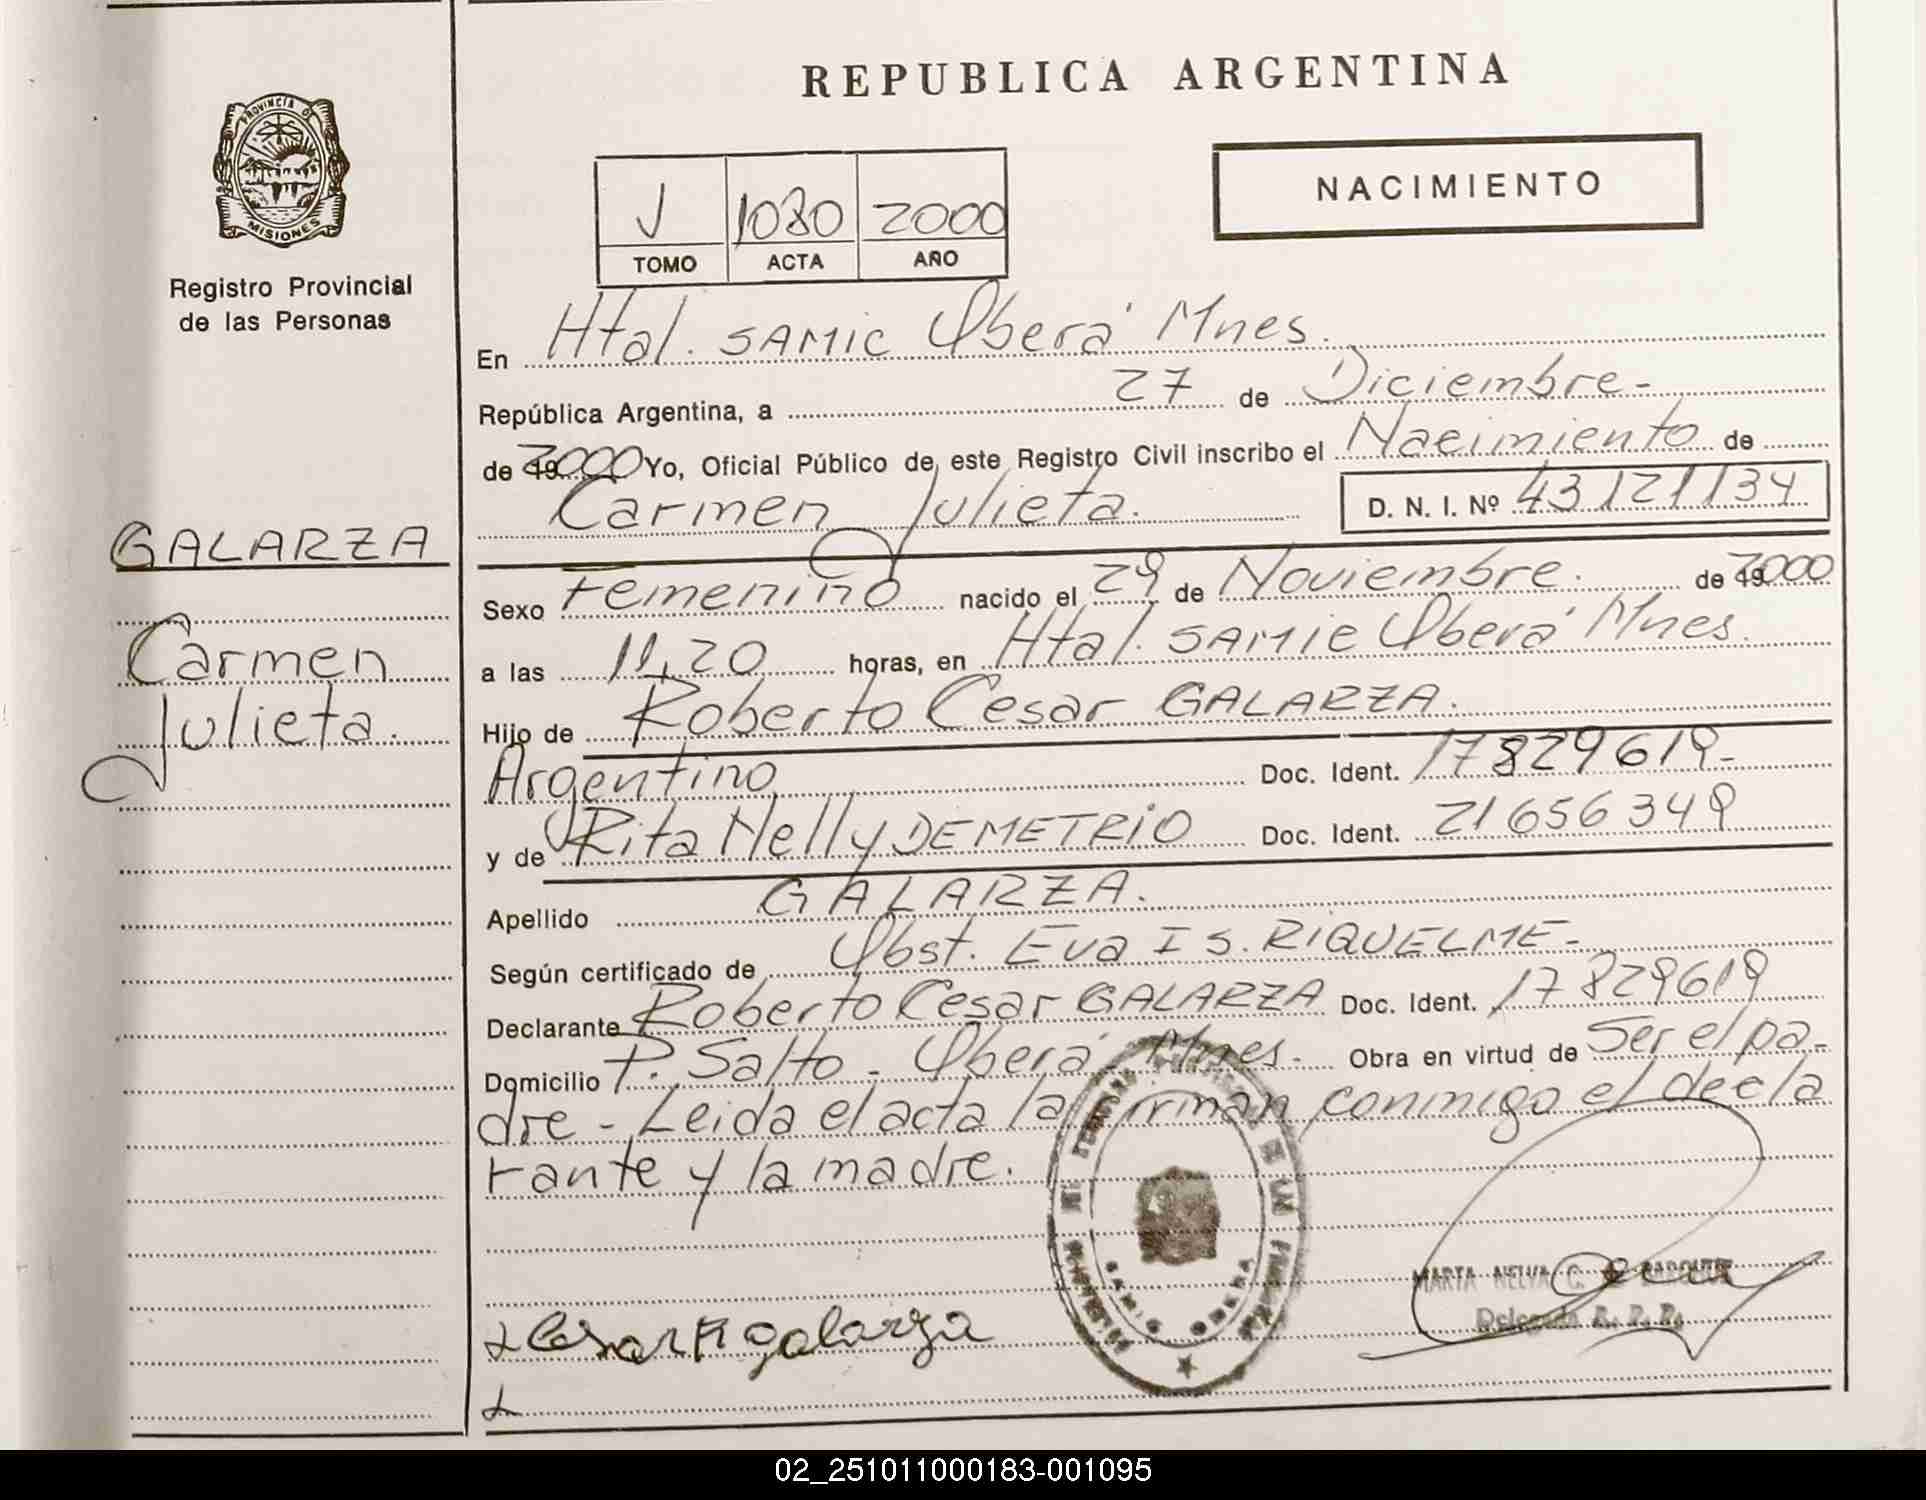 REPUBLICA ARGENTINA
NACIMIENTO
PROVINCIA DE
MISIONES
Registro Provincial
de las Personas
J 1080 2000
TOMO ACTA AÑO
En Htal. SAMIC Oberá Mnes.
República Argentina, a 27 de Diciembre-
de 2000 Yo, Oficial Público de este Registro Civil inscribo el Nacimiento de
Carmen Julieta. D. N. I. Nº 43121134
GALARZA
Carmen
Julieta.
Sexo Femenino nacido el 29 de Noviembre. de 2000
a las 11,20 horas, en Htal. SAMIC Oberá Mnes.
Hijo de Roberto Cesar GALARZA.
Argentino Doc. Ident. 17829619-
y de Rita Nelly DEMETRIO Doc. Ident. 21656349
Apellido GALARZA.
Según certificado de Obst. Eva I S. RIQUELME-
Declarante Roberto Cesar GALARZA Doc. Ident. 17829619
Domicilio P. Salto - Oberá - Mnes- Obra en virtud de Ser el pa-
dre - Leida el acta la firman conmigo el decla
rante y la madre.
MARTA NELVA C.
Delegada R. P. P.
Cesar R galarza
SAMIC OBERA
02_251011000183-001095